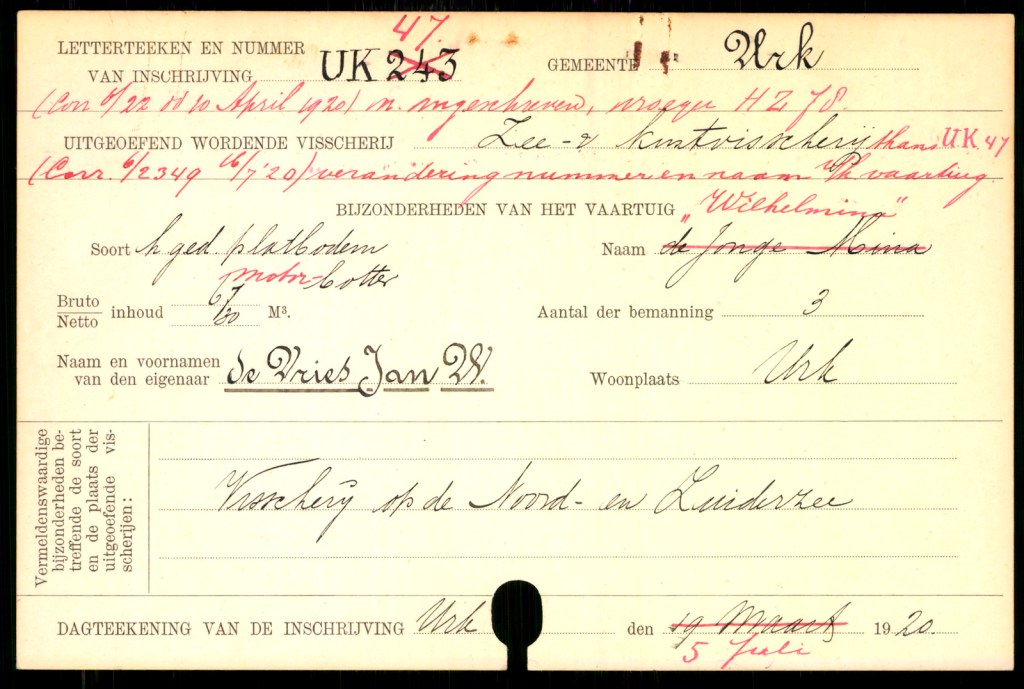 47.
LETTERTEEKEN EN NUMMER
VAN INSCHRIJVING UK 243 GEMEENTE Urk
(Corr 6/22 dd 10 April 1920) n. ingeschreven, vroeger HZ 78.
UITGEOEFEND WORDENDE VISSCHERIJ Zee- & kustvisscherij thans UK 47
(Corr. 6/2349 16/7 '20) verandering nummer en naam vaartuig.
BIJZONDERHEDEN VAN HET VAARTUIG „Wilhelmina"
Soort h ged. platbodem Naam de Jonge Mina
motor-botter
Bruto
Netto inhoud 67/20 M³. Aantal der bemanning 3
Naam en voornamen
van den eigenaar de Vries Jan W. Woonplaats Urk
Vermeldenswaardige
bijzonderheden be-
treffende de soort
en de plaats der
uitgeoefende vis-
scherijen:
Visscherij op de Noord- en Zuiderzee
DAGTEEKENING VAN DE INSCHRIJVING Urk den 19 Maart 1920.
5 Juli